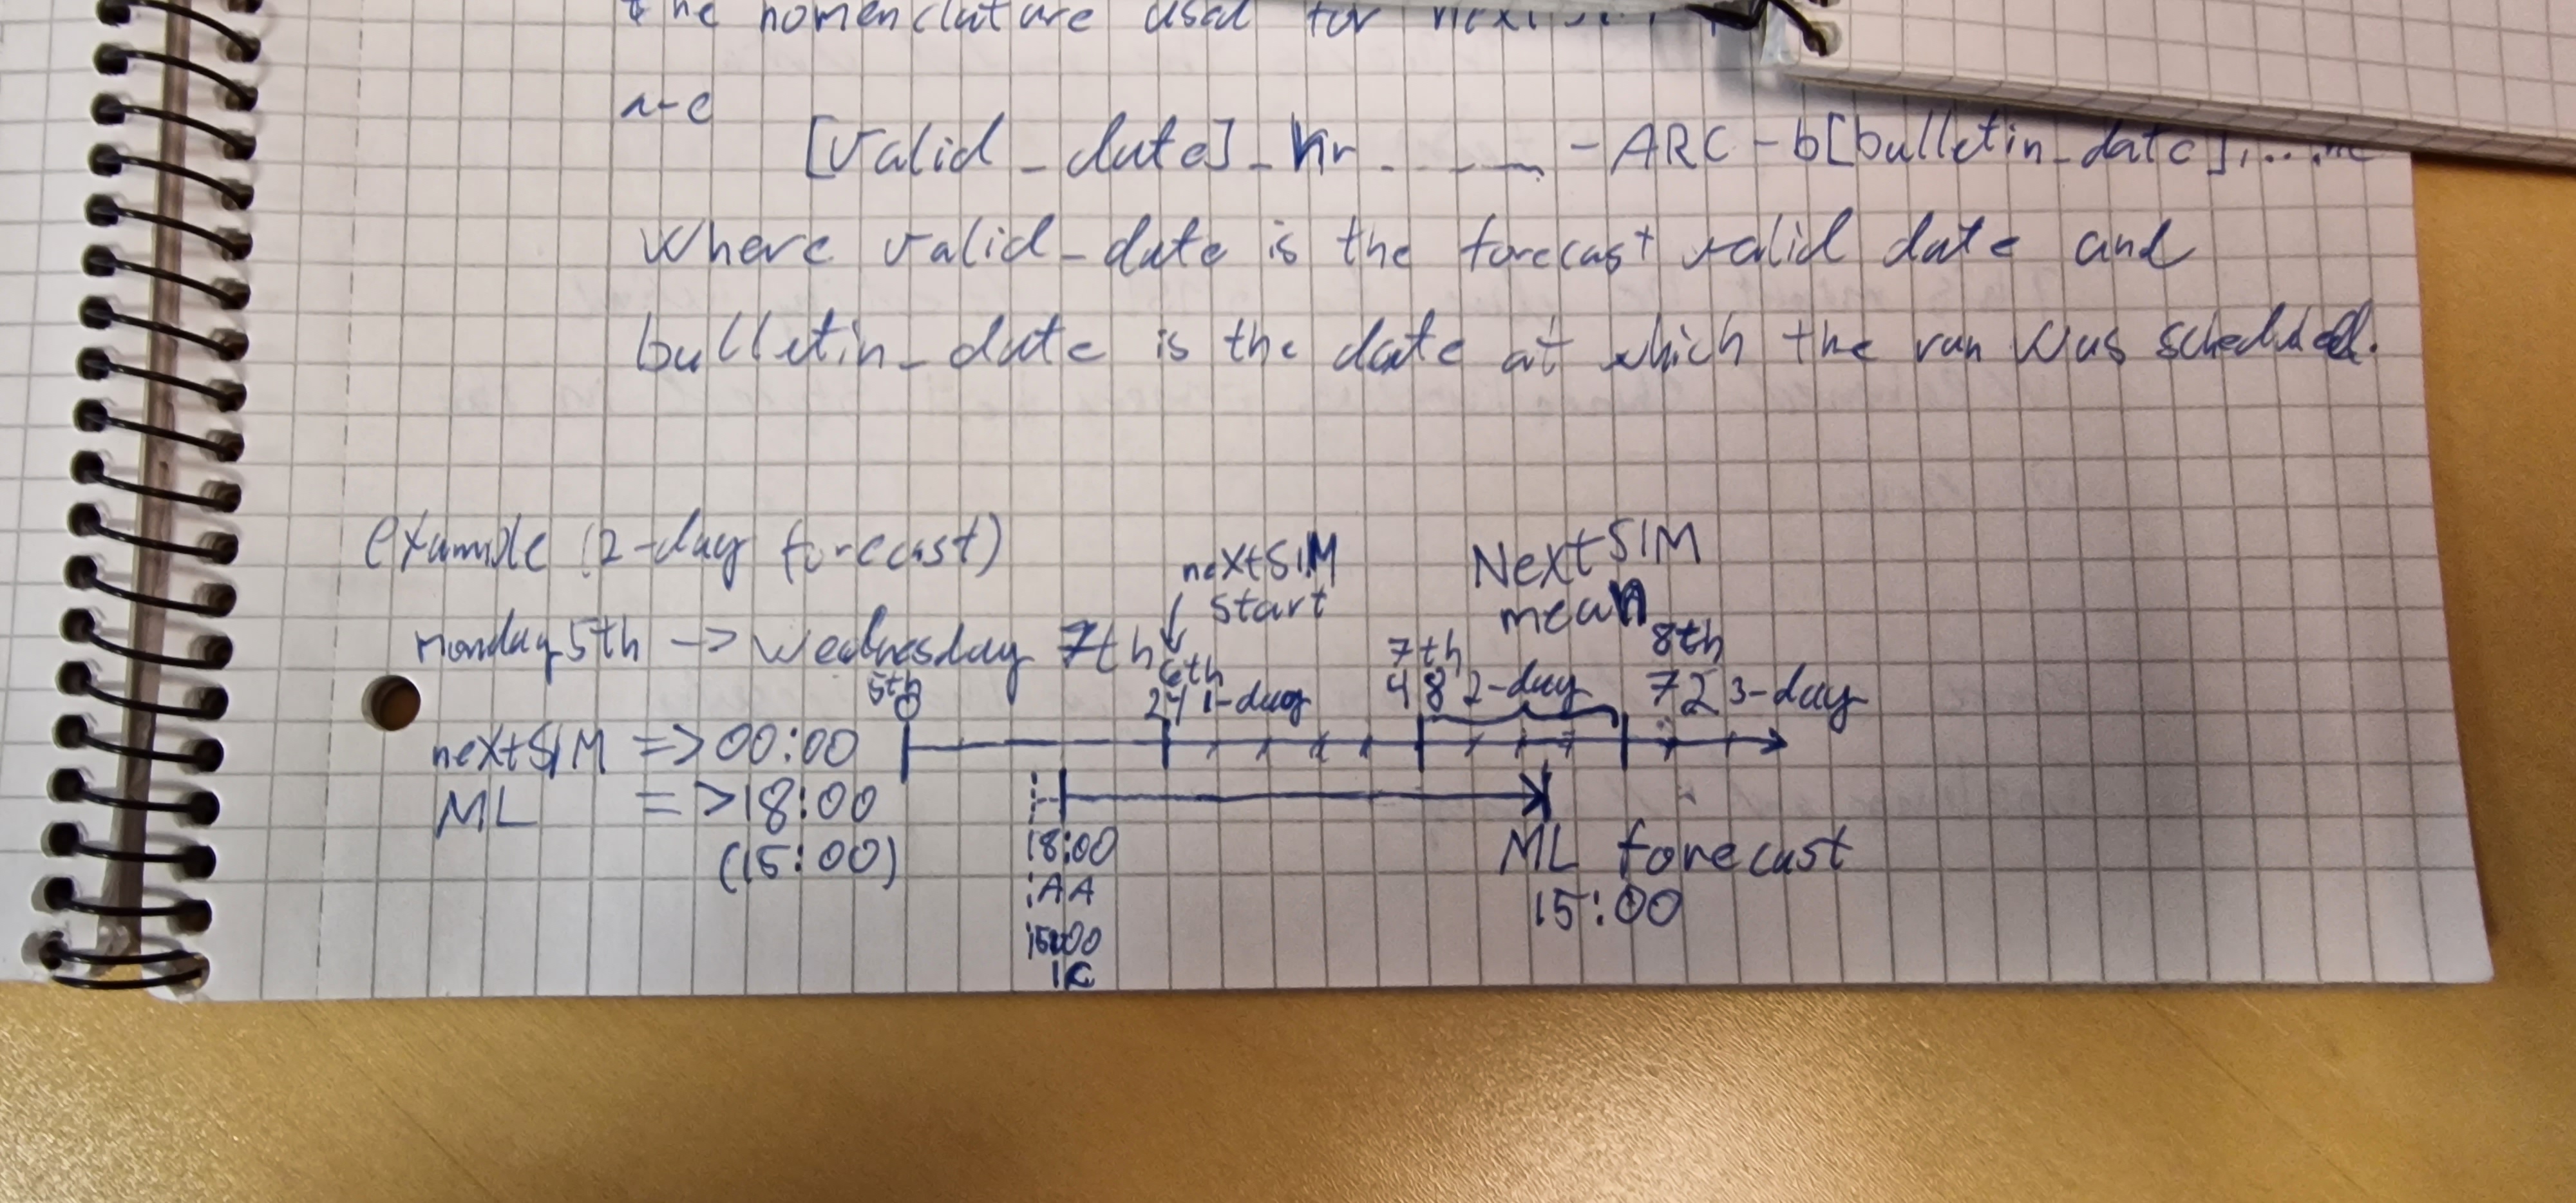 the nomenclature used for
n-e
[Valid_date]_hr - - - -ARC-b[bulletin_date]....nc
Where valid_date is the forecast valid date and
bulletin_date is the date at which the run was scheduled.
example (2-day forecast)
monday 5th -> Wednesday 7th
neXtSIM start
NextSIM mean
neXtSIM => 00:00
5th 0
6th 24 1-day
7th 48 2-day
8th 72 3-day
ML => 18:00
(15:00)
18:00
AA
15:00
IC
ML forecast
15:00